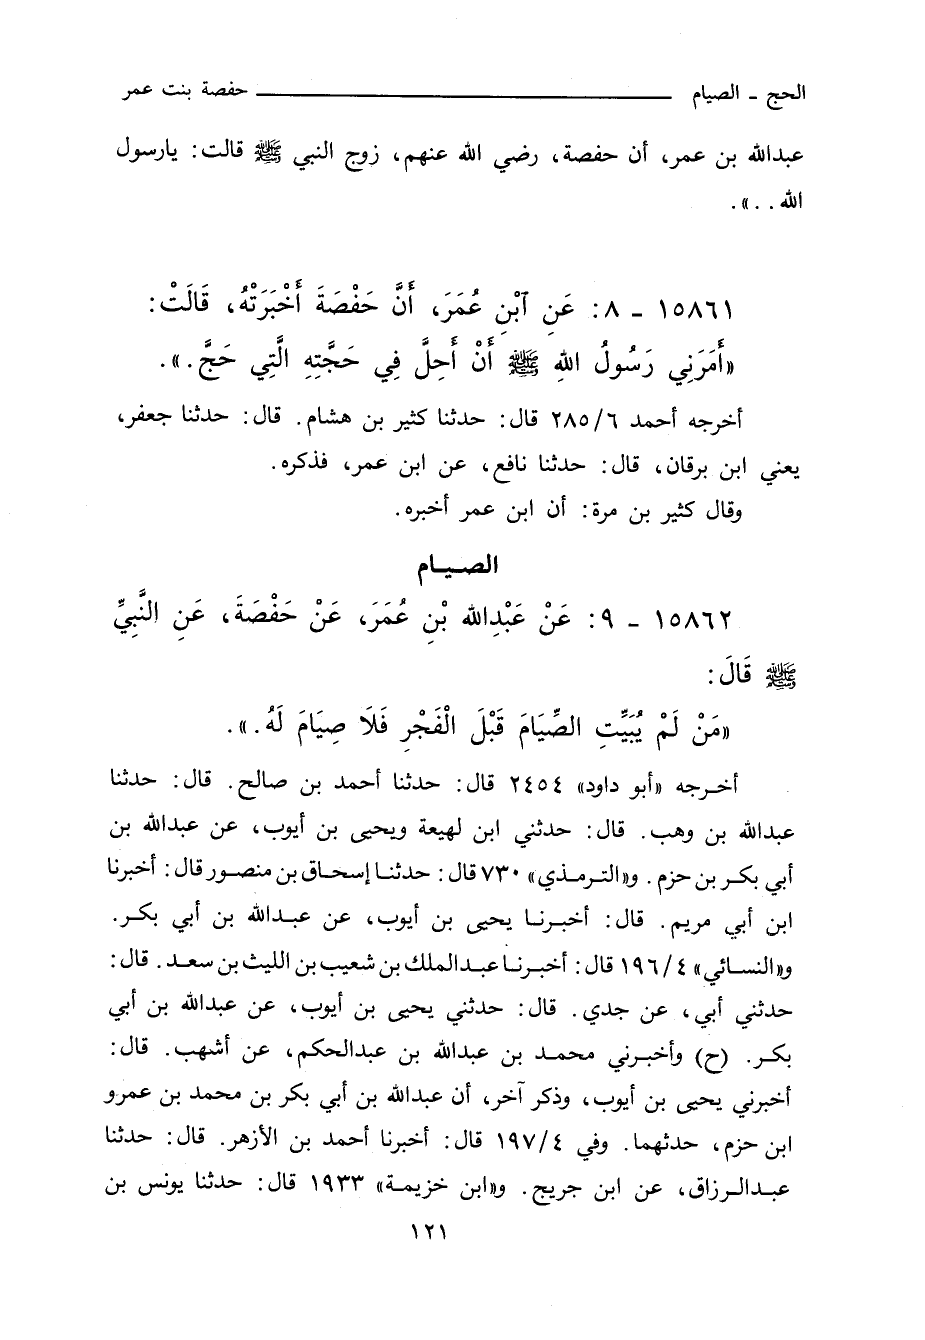 الحج ـ الصيام ـــــــــــــــــــــ حفصة بنت عمر
عبدالله بن عمر، أن حفصة، رضي الله عنهم، زوج النبي ﷺ قالت: يارسول
الله . . ».
١٥٨٦١ ـ ٨: عَنِ ٱبْنِ عُمَرَ، أَنَّ حَفْصَةَ أَخْبَرَتْهُ، قَالَتْ:
«أَمَرَنِي رَسُولُ اللهِ ﷺ أَنْ أَحِلَّ فِي حَجَّتِهِ الَّتِي حَجَّ.».
أخرجه أحمد ٢٨٥/٦ قال: حدثنا كثير بن هشام. قال: حدثنا جعفر،
يعني ابن برقان، قال: حدثنا نافع، عن ابن عمر، فذكره.
وقال كثير بن مرة: أن ابن عمر أخبره.
الصيـام
١٥٨٦٢ ـ ٩: عَنْ عَبْدِاللهِ بْنِ عُمَرَ، عَنْ حَفْصَةَ، عَنِ النَّبِيِّ
ﷺ قَالَ:
«مَنْ لَمْ يُبَيِّتِ الصِّيَامَ قَبْلَ الْفَجْرِ فَلَا صِيَامَ لَهُ.».
أخـرجه «أبو داود» ٢٤٥٤ قال: حدثنا أحمد بن صالح. قال: حدثنا
عبدالله بن وهب. قال: حدثني ابن لهيعة ويحيى بن أيوب، عن عبدالله بن
أبي بكـر بن حزم. و«التـرمـذي» ٧٣٠ قال: حدثنـا إسحـاق بن منصـور قال: أخبرنا
ابن أبي مريم. قال: أخبـرنـا يحيى بن أيوب، عن عبـدالله بن أبي بكر.
و«النسـائي» ١٩٦/٤ قال: أخبـرنـا عبـدالملك بن شعيب بن الليث بن سعـد. قال:
حدثني أبي، عن جدي. قال: حدثني يحيى بن أيوب، عن عبدالله بن أبي
بكـر. (ح) وأخبـرني محمـد بن عبدالله بن عبدالحكم، عن أشهب. قال:
أخبرني يحيى بن أيوب، وذكر آخر، أن عبدالله بن أبي بكر بن محمد بن عمرو
ابن حزم، حدثهما. وفي ١٩٧/٤ قال: أخبرنا أحمد بن الأزهر. قال: حدثنا
عبـدالـرزاق، عن ابن جريج. و«ابن خزيمـة» ١٩٣٣ قال: حدثنا يونس بن
١٢١